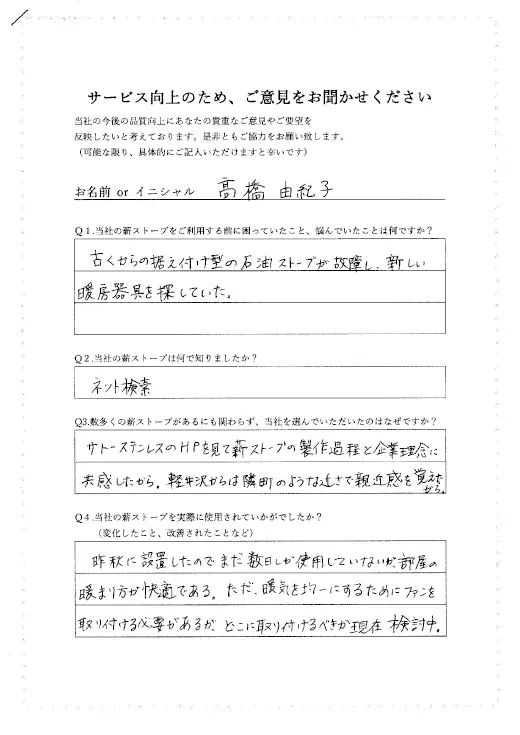 サービス向上のため、ご意見をお聞かせください
当社の今後の品質向上にあなたの貴重なご意見やご要望を
反映したいと考えております。是非ともご協力をお願い致します。
（可能な限り、具体的にご記入いただけますと幸いです）
お名前 or イニシャル 髙橋 由紀子
Q１.当社の薪ストーブをご利用する前に困っていたこと、悩んでいたことは何ですか？
古くからの据え付け型の石油ストーブが故障し、新しい
暖房器具を探していた。
Q２.当社の薪ストーブは何で知りましたか？
ネット検索
Q3.数多くの薪ストーブがあるにも関わらず、当社を選んでいただいたのはなぜですか？
サトーステンレスのHPを見て薪ストーブの製作過程と企業理念に
共感したから。軽井沢からは隣町のような近さで親近感を覚えた
から。
Q４.当社の薪ストーブを実際に使用されていかがでしたか？
（変化したこと、改善されたことなど）
昨秋に設置したのでまだ数日しか使用していないが、部屋の
暖まり方が快適である。ただ、暖気を均一にするためにファンを
取り付ける必要があるが、どこに取り付けるべきか現在検討中。